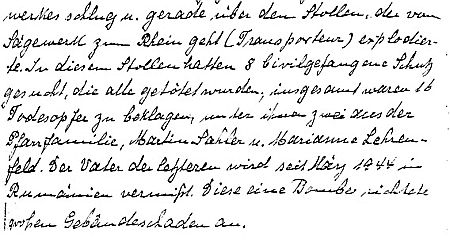 werkes schlug u. gerade über den Stollen, der vom
Sägewerk zum Rhein geht (Transporteur) explodier-
te. In diesem Stollen hatten 8 Zivilgefangene Schutz
gesucht, die alle getötet wurden; insgesamt waren 16
Todesopfer zu beklagen, unter ihnen zwei aus der
Pfarrfamilie, Martin Sahler u. Marianne Lehren-
feld. Der Vater der letzteren wird seit März 1944 in
Rumänien vermißt. Diese eine Bombe richtete
großen Gebäudeschaden an.